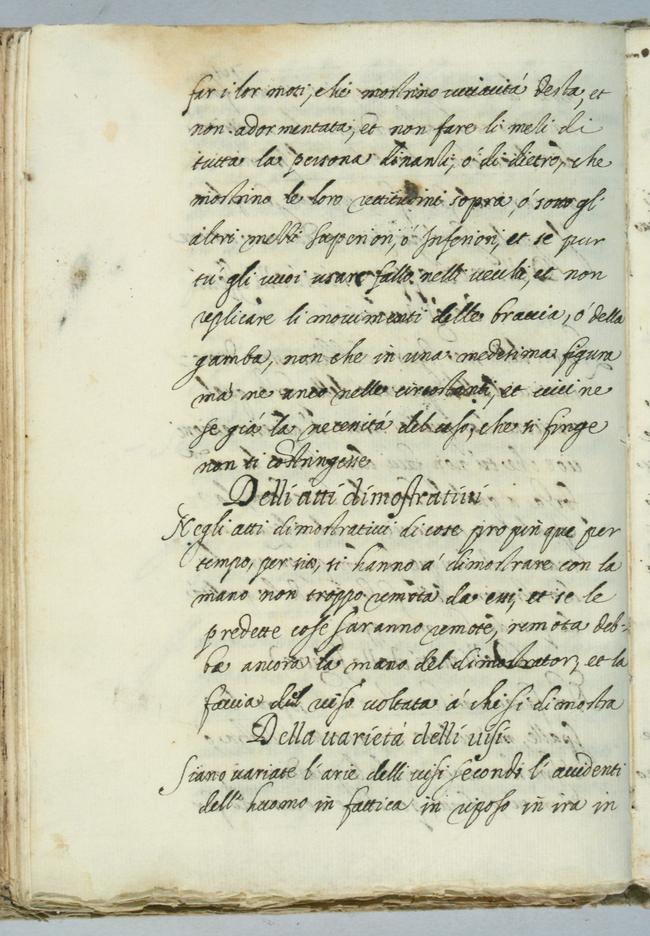 far i lor moti, che mostrino vivacità desta, et
non adormentata, et non fare li mebi di
tutta la persona dinanti, ò di dietro, che
mostrino le loro rettitudini sopra, ò sotto gl'
altri mebri superiori, ò Inferiori, et se pur
tù gli vuoi usare fallo nelli vecchi, et non
replicare li movimenti delle braccia, ò della
gamba, non che in una medesima figura
mà ne anco nelle circostanti, et vicine
se già la necessità del caso, che si finge
non ti costringesse
Delli atti dimostrativi
Negli atti dimostrativi di cose propinque per
tempo, per sito, si hanno à dimostrare con la
mano non troppo remota da essi, et se le
predette cose saranno remote, remota deb-
be ancora la mano del dimostrator, et la
faccia del viso voltata à chi si dimostra
Della varietà delli visi
Siano variate l'arie delli visi secondo l'accidenti
dell' huomo in fattica in riposo in ira in